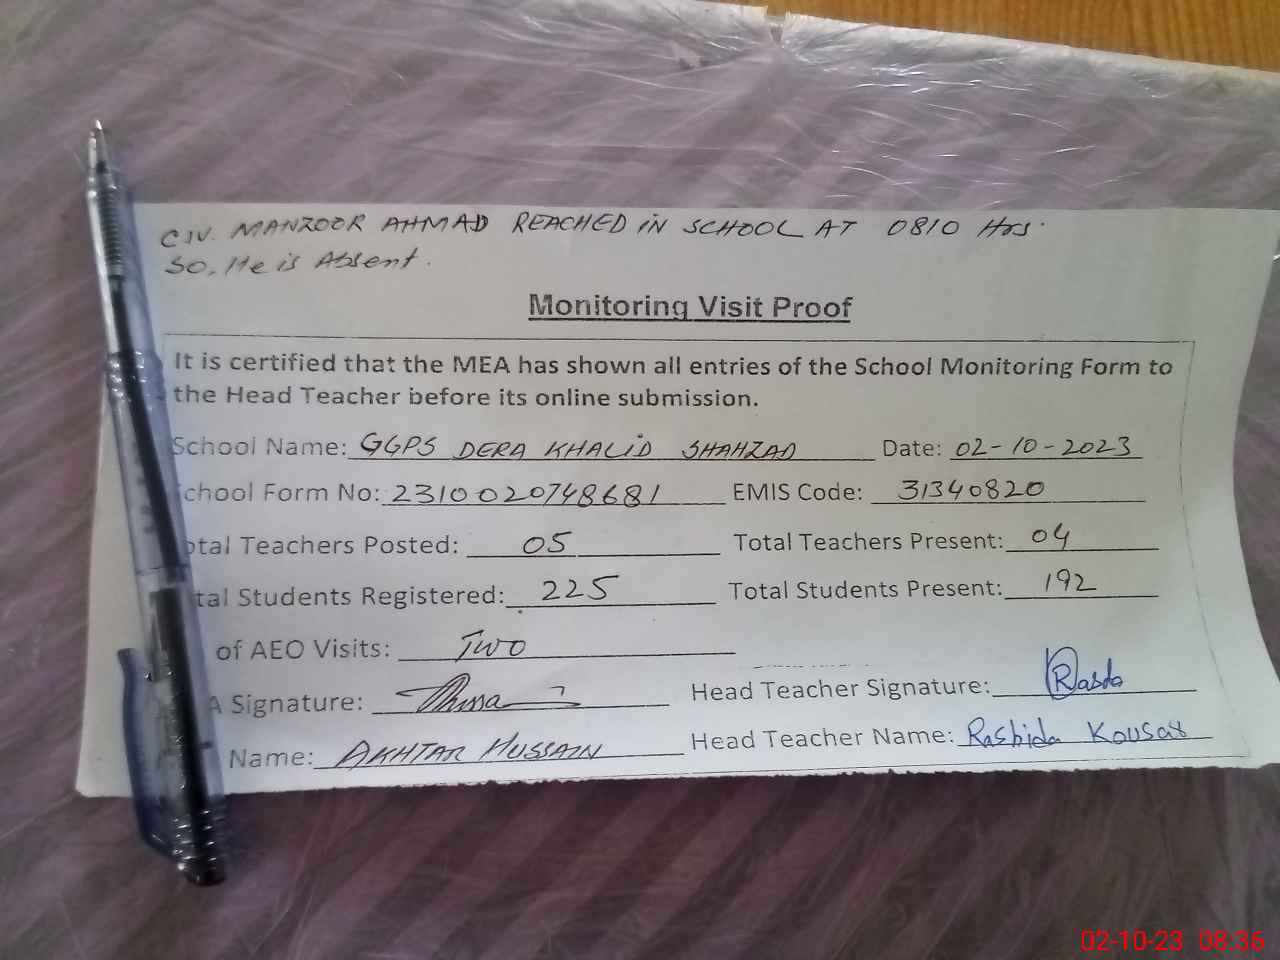 C.IV. MANZOOR AHMAD REACHED iN SCHOOL AT 0810 Hrs.
SO, He is Absent.
Monitoring Visit Proof
It is certified that the MEA has shown all entries of the School Monitoring Form to
the Head Teacher before its online submission.
School Name: GGPS DERA KHALiD SHAHZAD Date: 02-10-2023
chool Form No: 2310020748681 EMIS Code: 31340820
otal Teachers Posted: 05 Total Teachers Present: 04
tal Students Registered: 225 Total Students Present: 192
of AEO Visits: Two
A Signature: Head Teacher Signature:
Name: AKHTAR HUSSAIN Head Teacher Name: Rashida Kousar
02-10-23 08:36